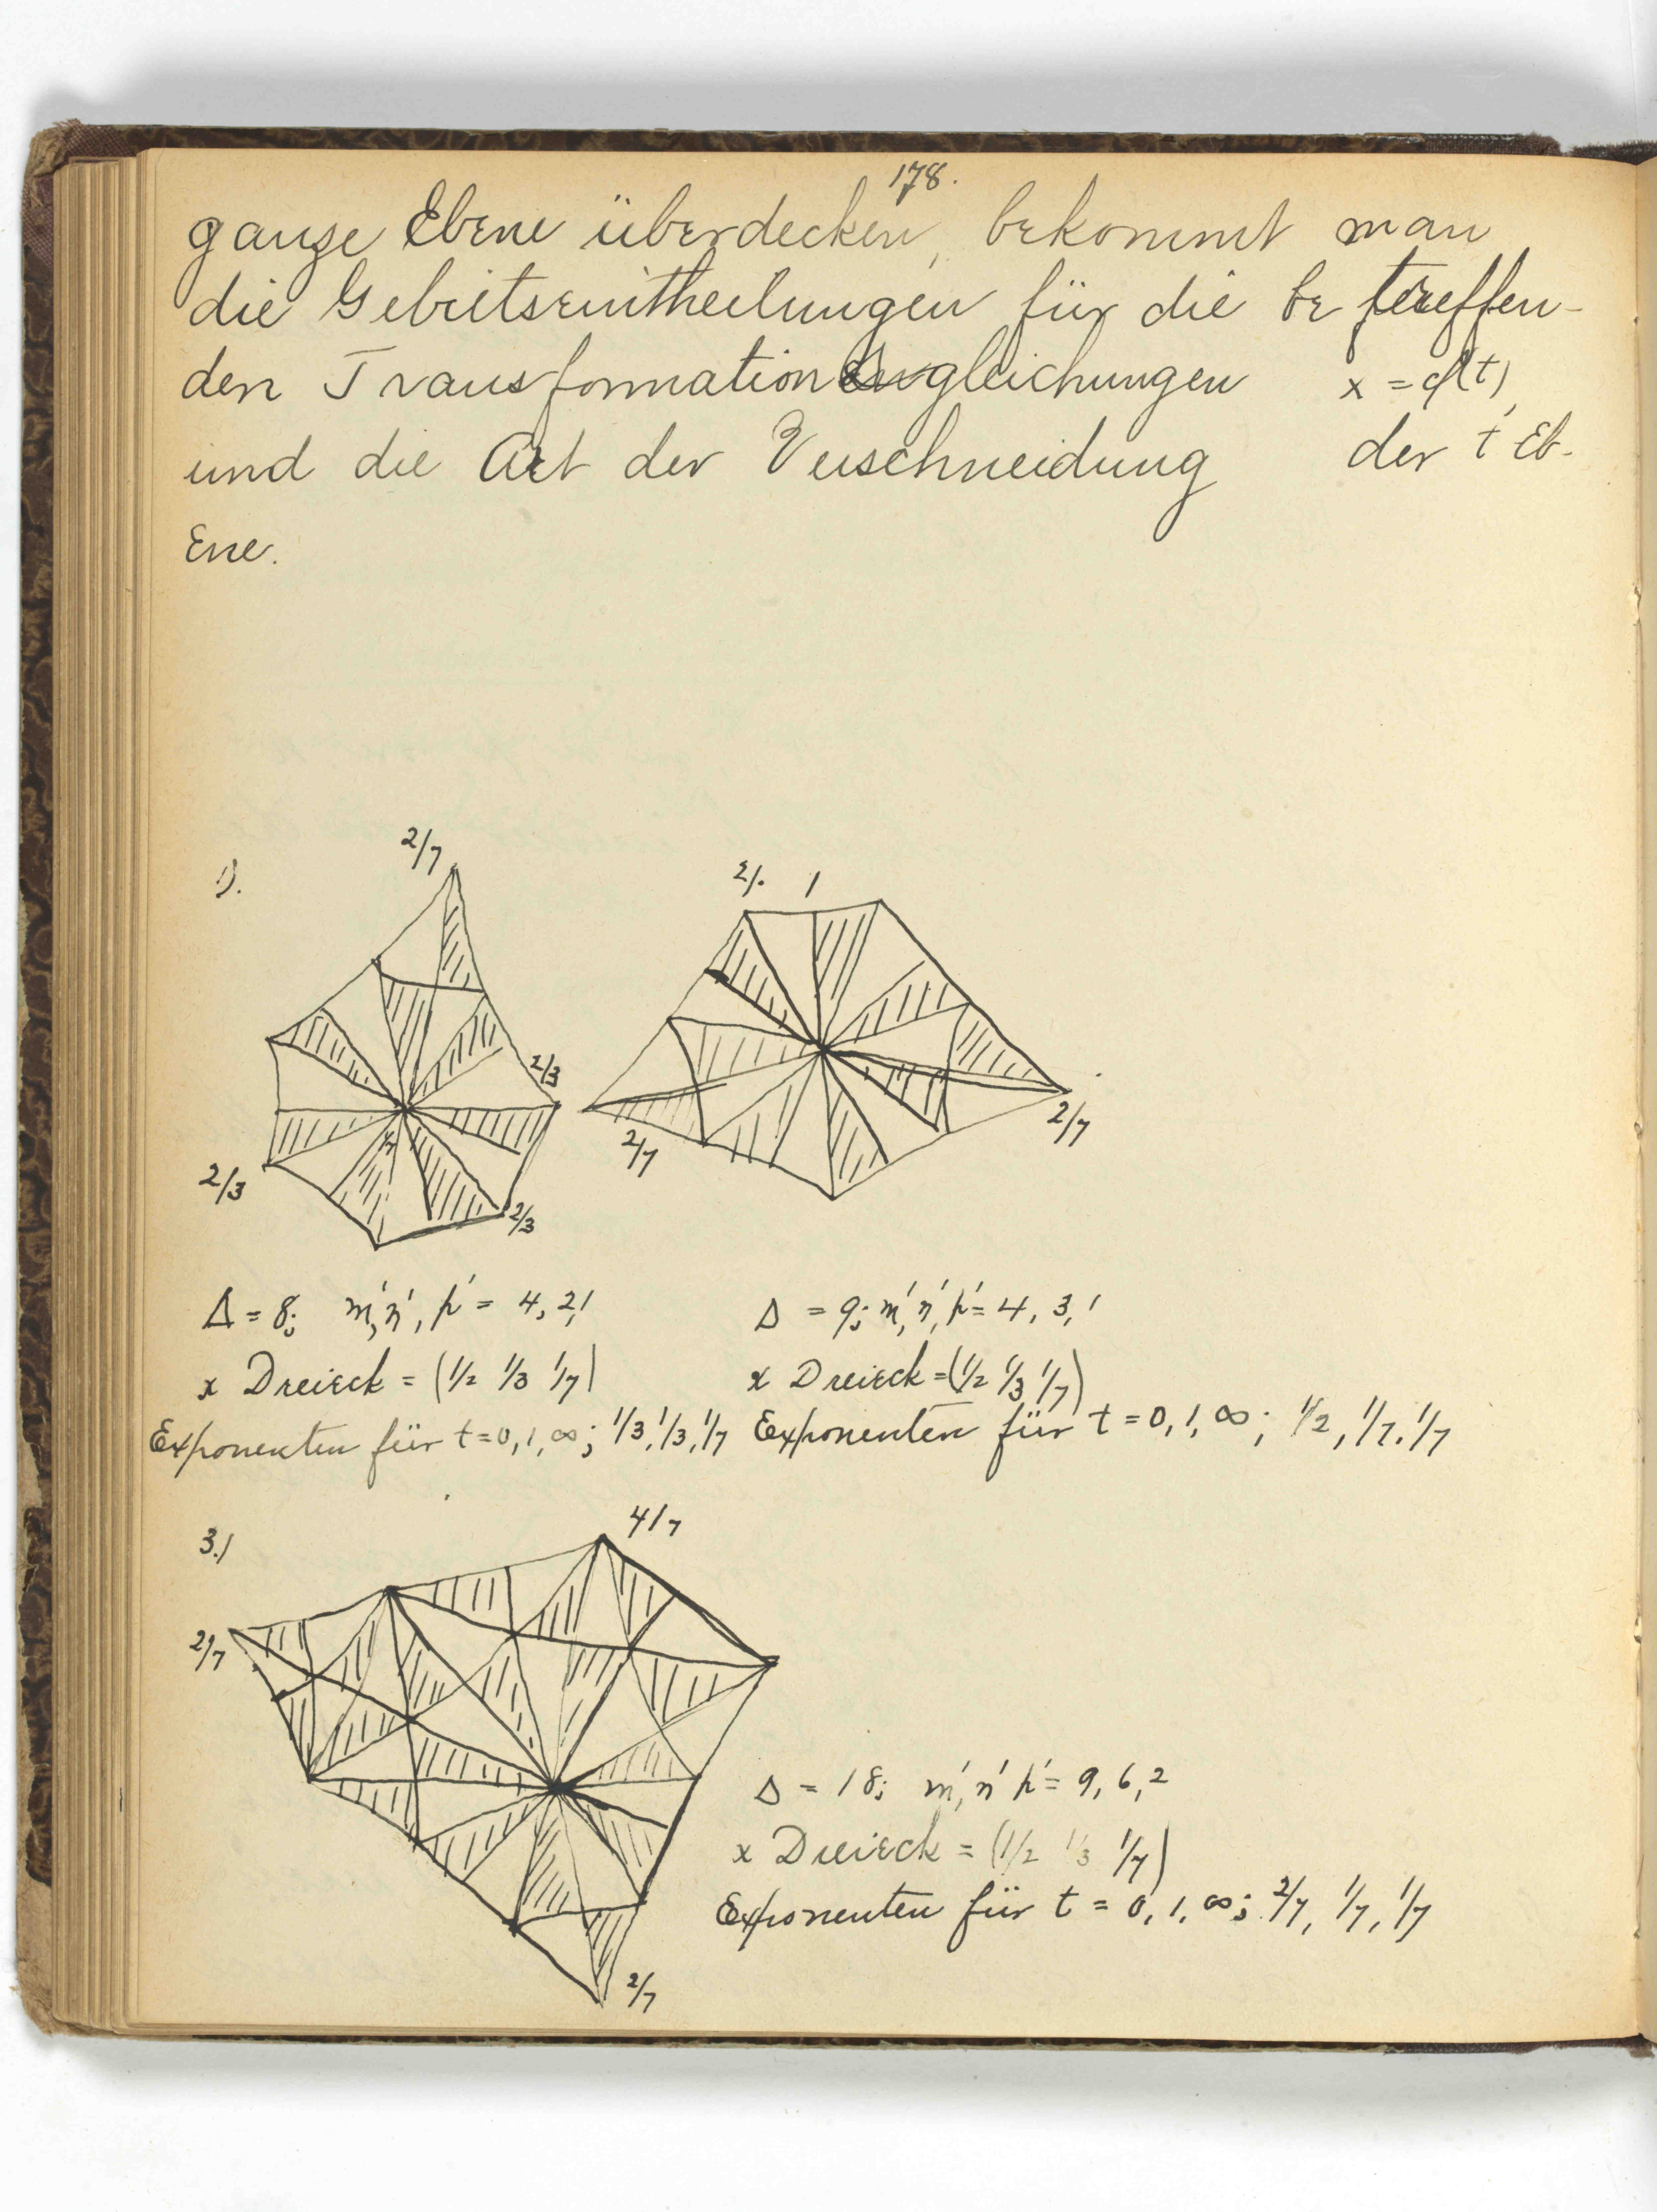 178.
ganze Ebene überdecken, bekommt man
die Gebietseintheilungen für die betreffen-
den Transformationsgleichungen x = φ(t),
und die Art der Verschneidung der t Eb-
ene.
1).
2/7
2/3
2/3
2/3
2/. 1
2/7
2/7
Δ = 8; m', n', p' = 4, 2, 1
x Dreieck = (1/2 1/3 1/7)
Exponenten für t = 0, 1, ∞; 1/3, 1/3, 1/7
Δ = 9; m', n', p' = 4, 3, 1
x Dreieck = (1/2 1/3 1/7)
Exponenten für t = 0, 1, ∞; 1/2, 1/7, 1/7
3.)
4/7
2/7
2/7
Δ = 18; m', n' p' = 9, 6, 2
x Dreieck = (1/2 1/3 1/7)
Exponenten für t = 0, 1, ∞; 2/7, 1/7, 1/7